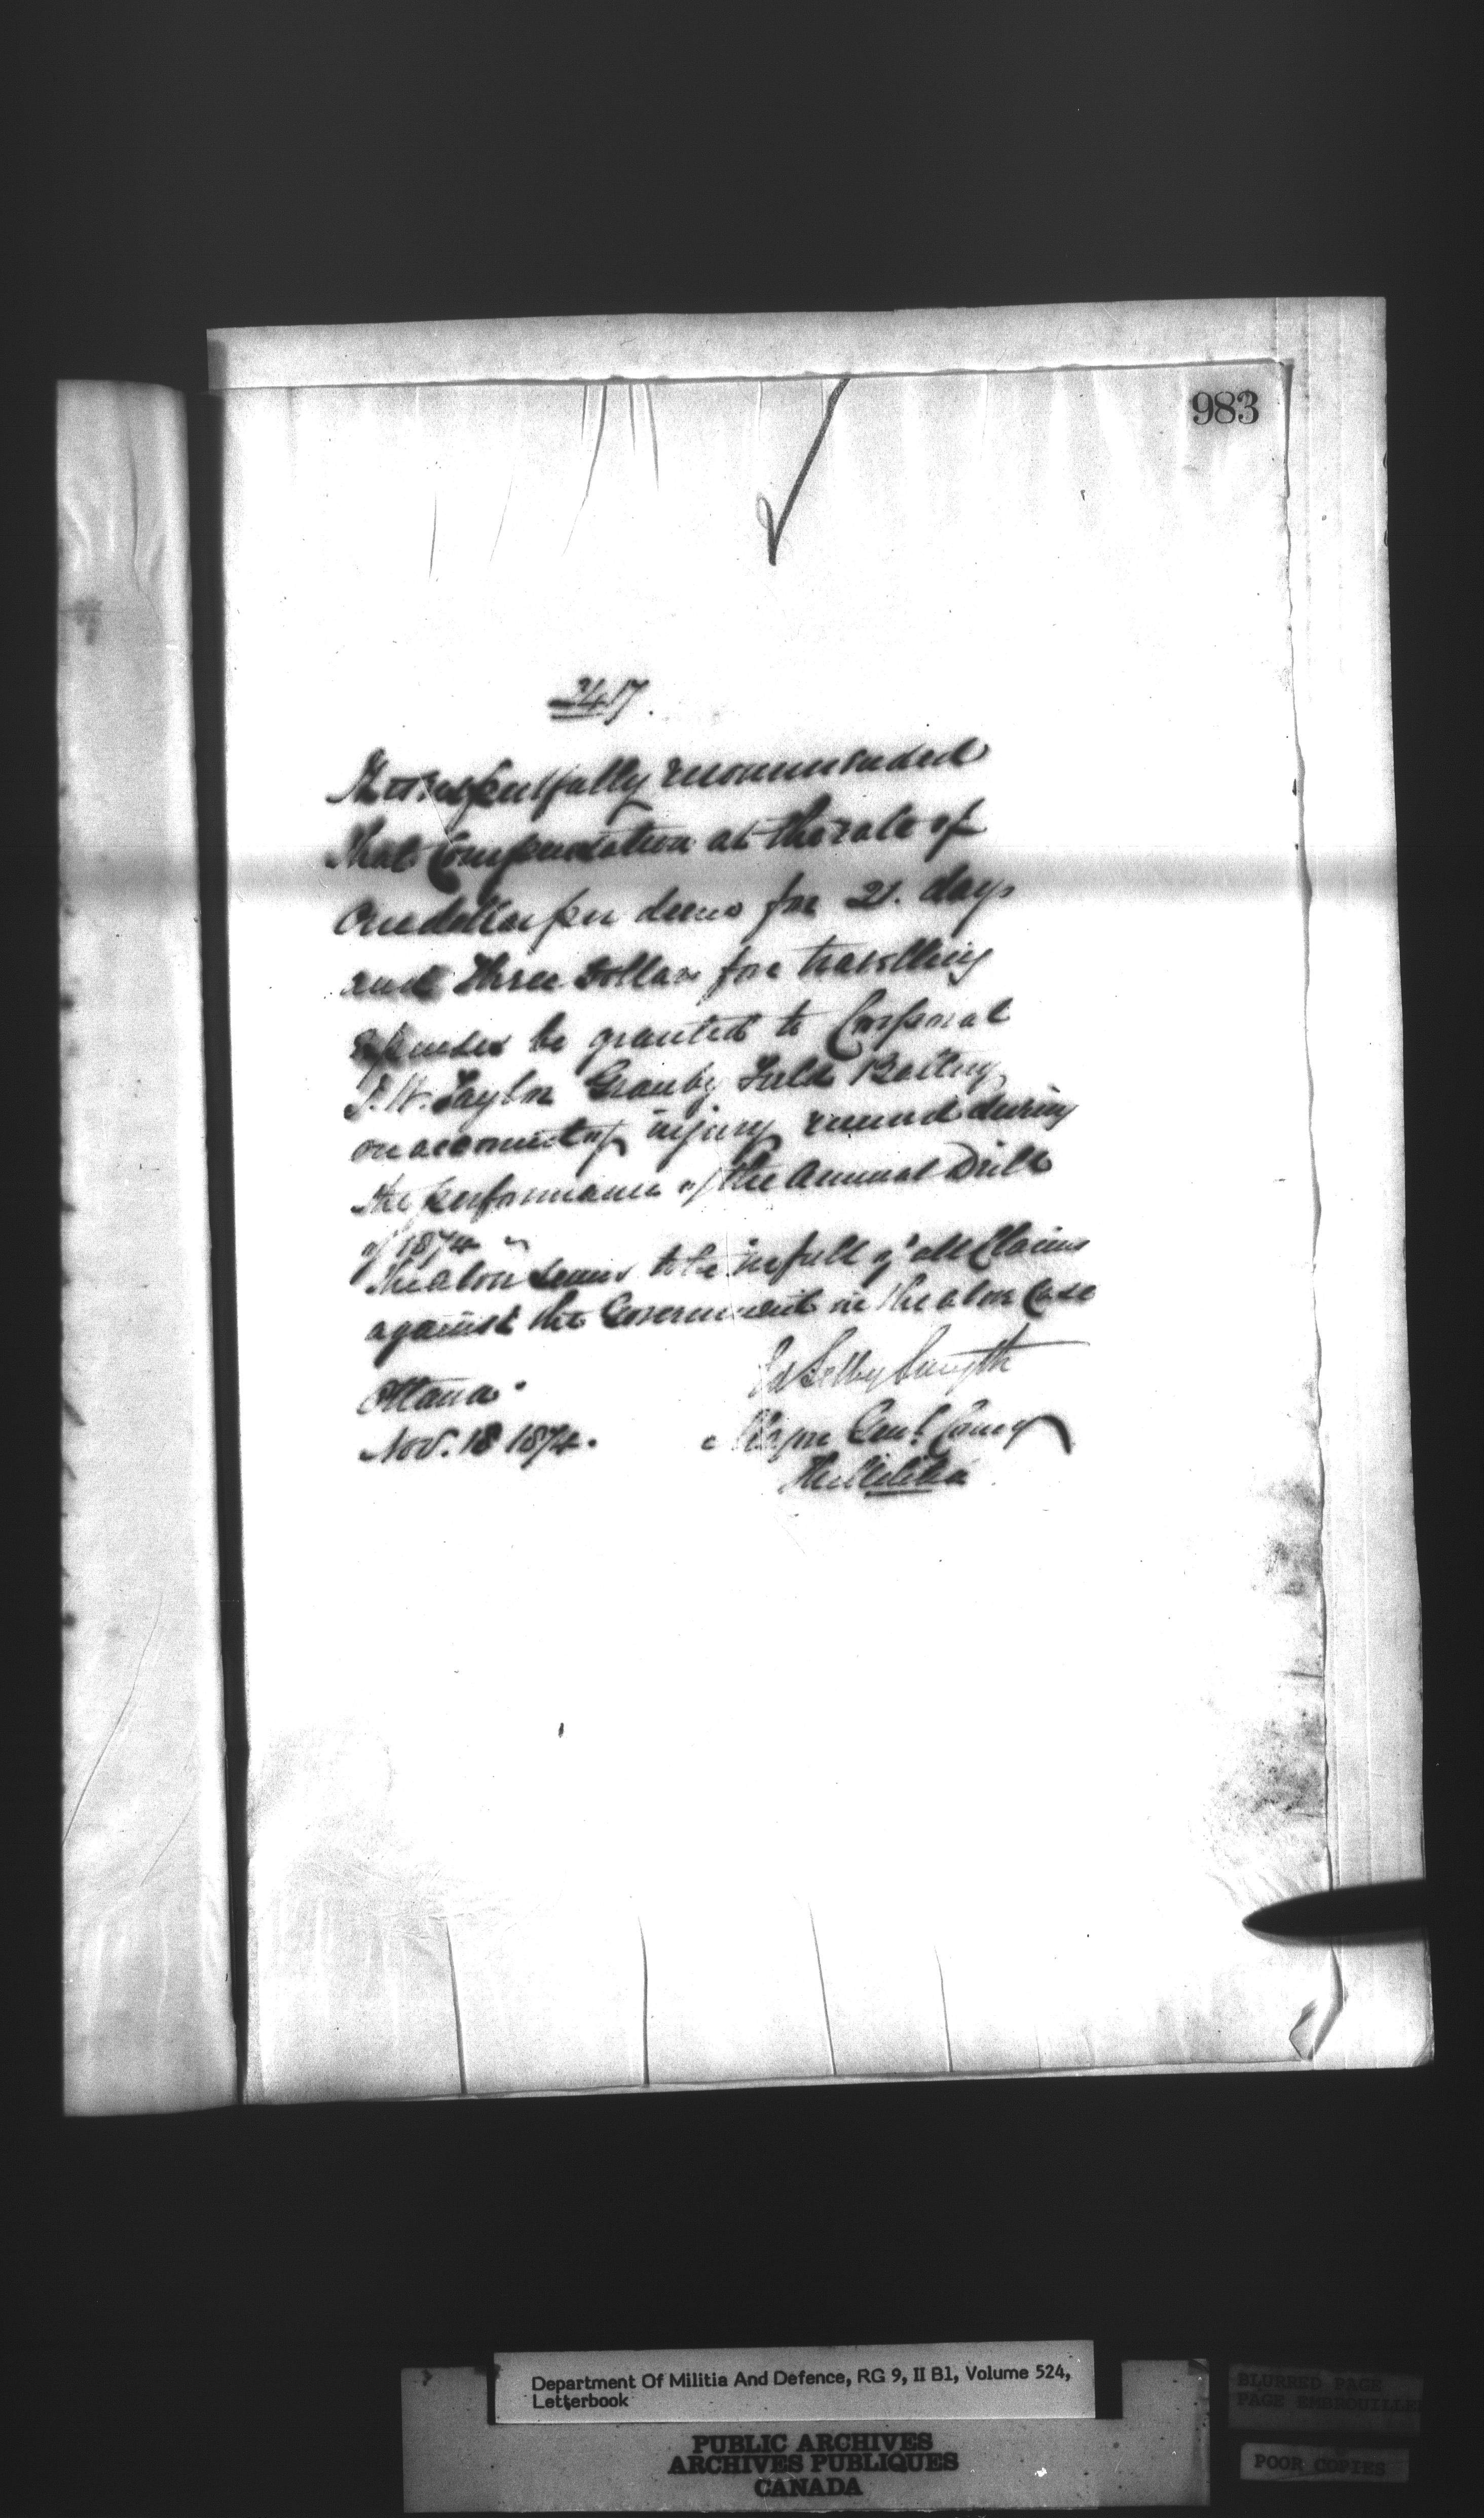 983
2417.
It is respectfully recommended
that Compensation at the rate of
One dollar per diem for 21. days
and three dollars for travelling
expenses be granted to Corporal
J. W. Taylor Granby Field Battery
on account of injury received during
the performance of the Annual Drill
of 1874
The above seems to be in full of all Claims
against the Government in the above Case
Ed Selby Smyth
Ottawa.
Nov. 18 1874.
Major Genl. Comg
The Militia
Department Of Militia And Defence, RG 9, II B1, Volume 524,
Letterbook
PUBLIC ARCHIVES
ARCHIVES PUBLIQUES
CANADA
BLURRED PAGE
PAGE EMBROUILLEE
POOR COPIES